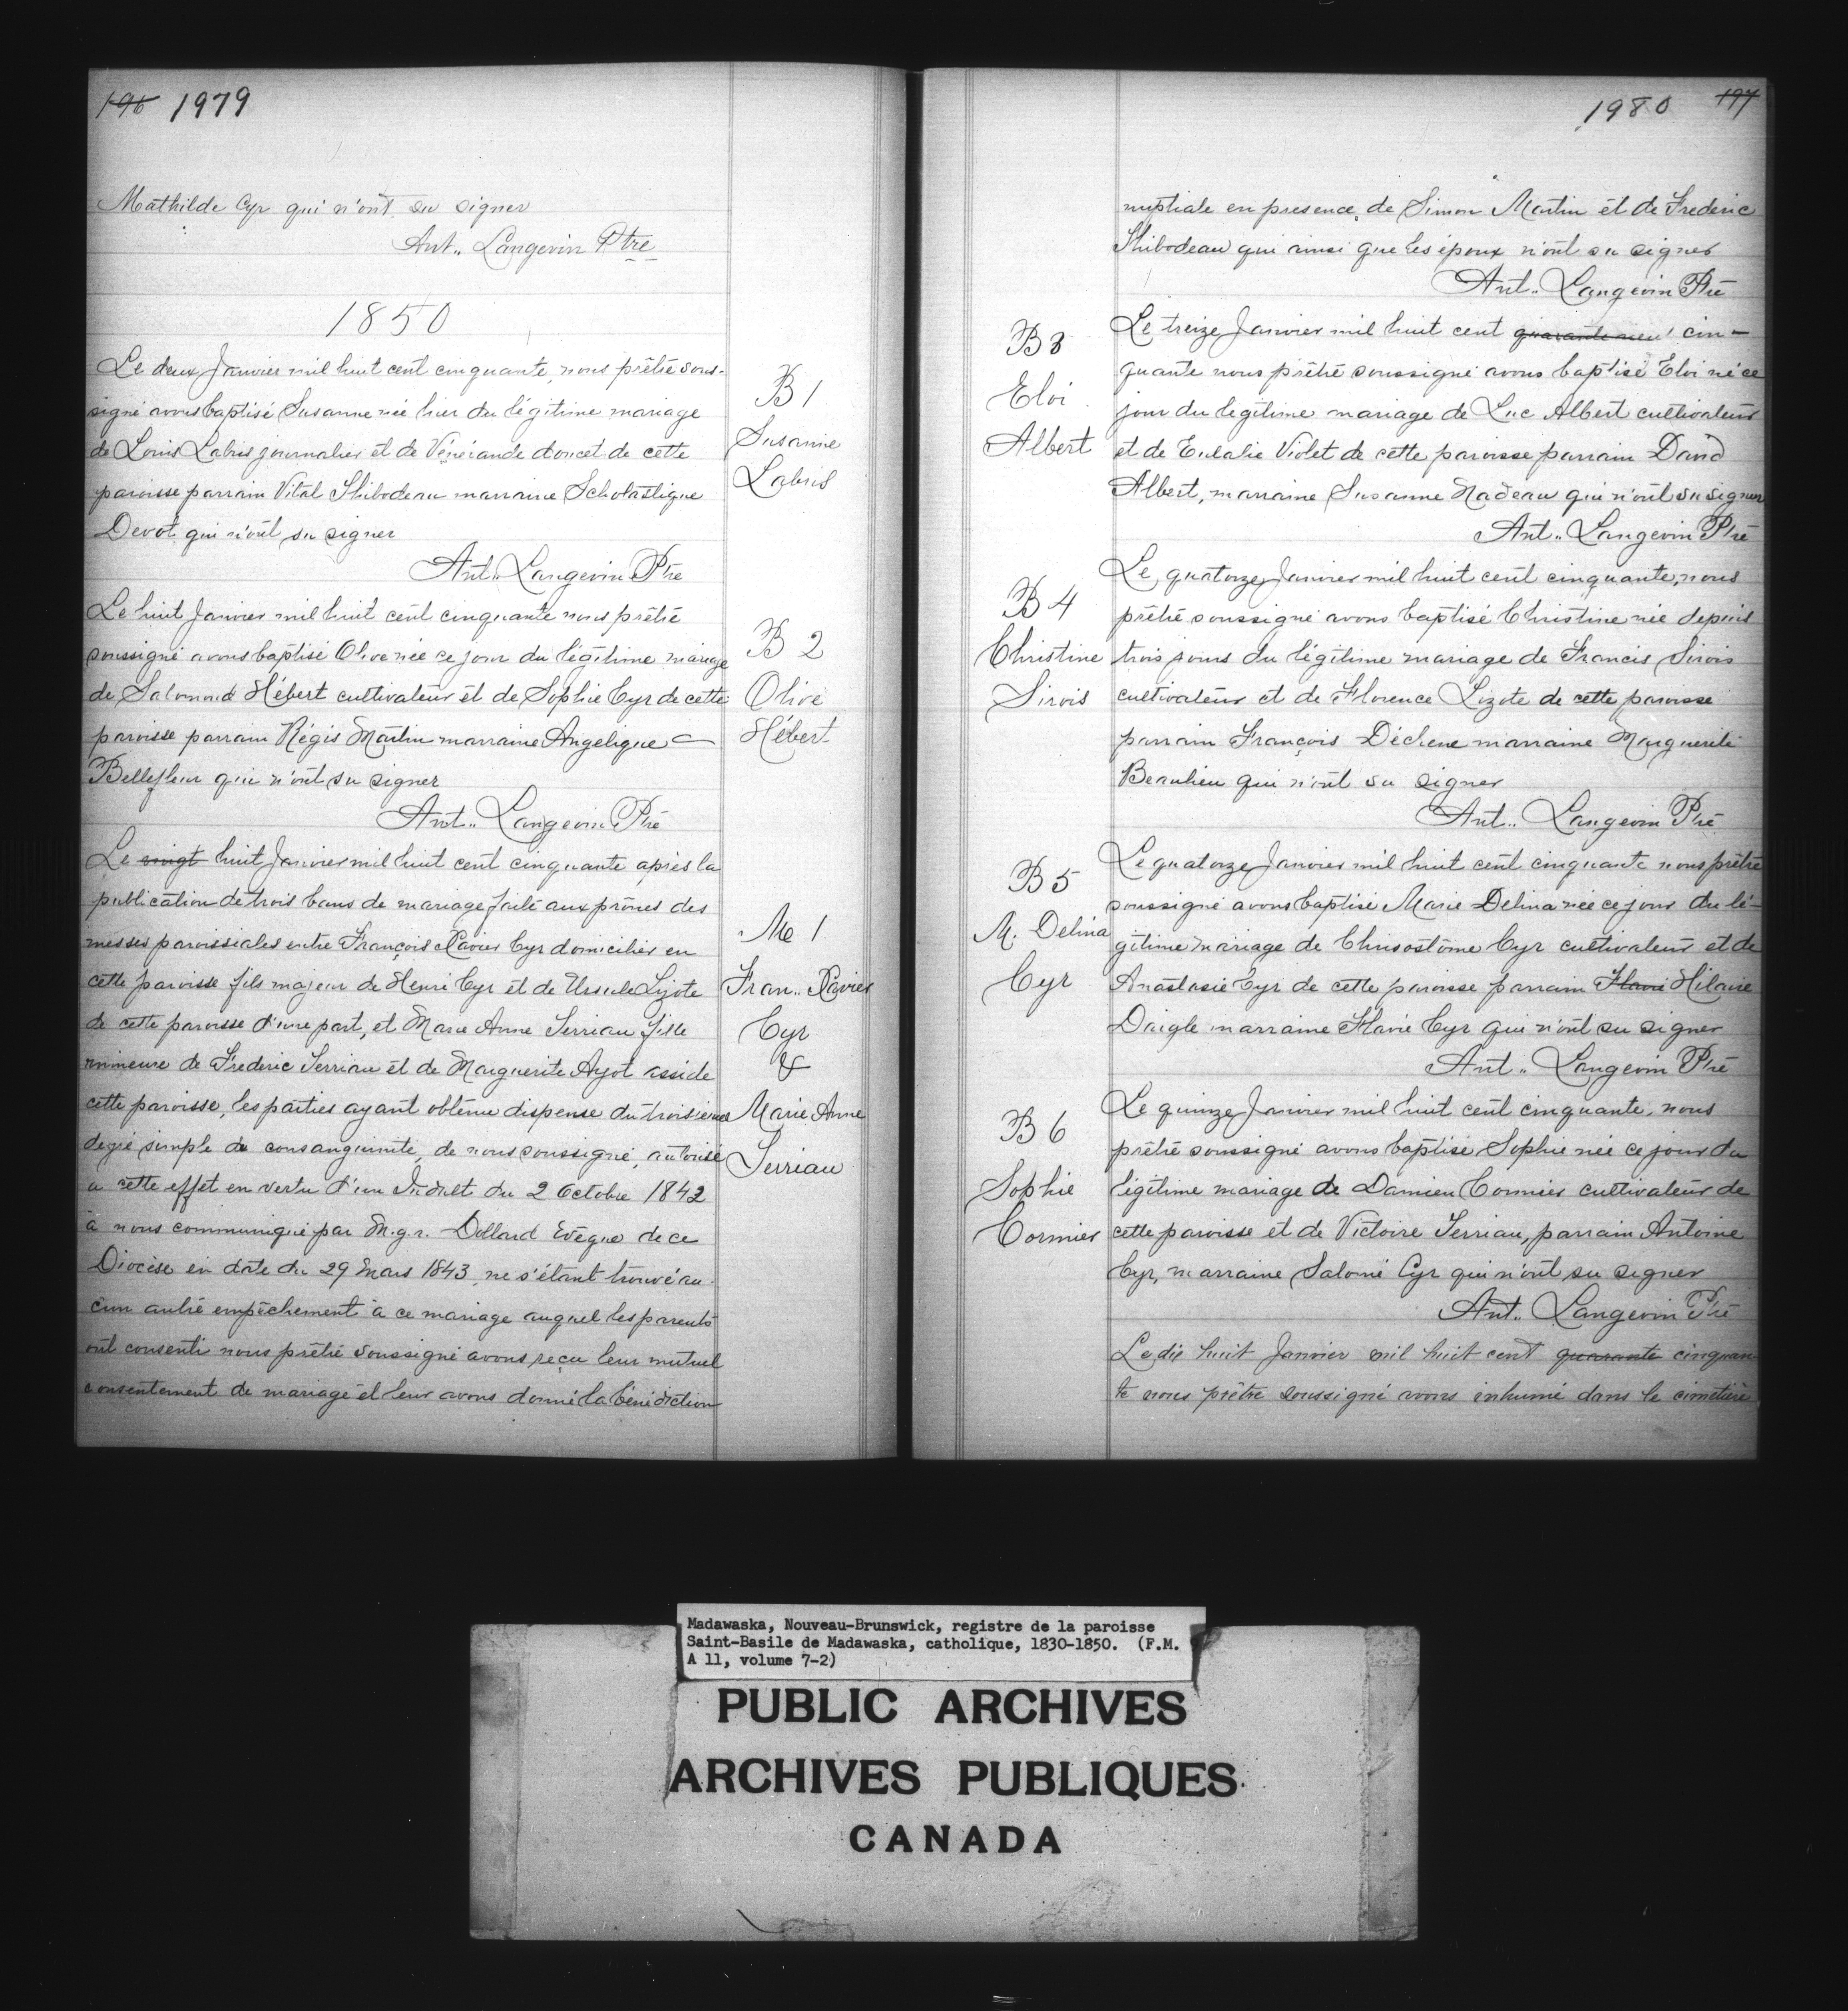 196 1979
Mathilde Cyr qui n'ont su signer
Ant.. Langevin Ptre
1850
Le deux Janvier mil huit cent cinquante, nous prêtre sous-
signé avons baptisé Susanne née hier du légitime mariage
de Louis Labris journalier et de Vénérande doucet de cette
paroisse parrain Vital Thibodeau marraine Scholastique
Devot qui n'ont su signer
Ant.. Langevin Ptre
B 1
Susanne
Labris
Le huit Janvier mil huit cent cinquante nous prêtre
soussigné avons baptisé Olive née ce jour du légitime mariage
de Salomond Hébert cultivateur et de Sophie Cyr de cette
paroisse parrain Régis Martin marraine Angelique
Bellefleur qui n'ont su signer
Ant.. Langevin Ptre
B 2
Olive
Hébert
Le vingt huit Janvier mil huit cent cinquante après la
publication de trois bans de mariage faite aux prônes des
messes paroissiales entre François Xavier Cyr domicilier en
cette paroisse fils majeur de Henri Cyr et de Ursule Lizote
de cette paroisse d'une part, et Marie Anne Terriau fille
mineure de Frederic Terriau et de Marguerite Ayot assi de
cette paroisse, les parties ayant obtenue dispense du troisieme
degré simple de consanguinité, de nous soussigné, autorisé
a cette effet en vertu d'un Indult du 2 Octobre 1842
à nous communiqué par M.g.r. Dollard Evêque de ce
Diocèse en date du 29 Mars 1843, ne s'étant trouvé au-
cun autre empêchement à ce mariage auquel les parents
ont consenti nous prêtre soussigné avons reçu leur mutuel
consentement de mariage et leur avons donné la bénédiction
M 1
Fran.. Xavier
Cyr
&
Marie Anne
Terriau
1980 197
nuptiale en presence de Simon Martin et de Frederic
Thibodeau qui ainsi que les époux n'ont su signer
Ant.. Langevin Ptre
B 3
Eloi
Albert
Le treize Janvier mil huit cent quarante neuf cin-
quante nous prêtre soussigné avons baptisé Eloi né ce
jour du legitime mariage de Luc Albert cultivateur
et de Eulalie Violet de cette paroisse parrain David
Albert, marraine Susanne Nadeau qui n'ont su signer
Ant.. Langevin Ptre
B 4
Christine
Sirois
Le quatorze Janvier mil huit cent cinquante, nous
prêtre soussigné avons baptisé Christine née depuis
trois jours du légitime mariage de Francis Sirois
cultivateur et de Florence Lizote de cette paroisse
parrain François Déchene marraine Marguerite
Beaulieu qui n'ont su signer
Ant.. Langevin Ptre
B 5
M. Delina
Cyr
Le quatorze Janvier mil huit cent cinquante nous prêtre
soussigné avons baptisé Marie Delina née ce jour du lé-
gitime mariage de Chrisostôme Cyr cultivateur et de
Anastasie Cyr de cette paroisse parrain Flavie Hilaire
Daigle marraine Flavie Cyr qui n'ont su signer
Ant.. Langevin Ptre
B 6
Sophie
Cormier
Le quinze Janvier mil huit cent cinquante, nous
prêtre soussigné avons baptisé Sophie née ce jour du
légitime mariage de Damien Cormier cultivateur de
cette paroisse et de Victoire Terriau, parrain Antoine
Cyr, marraine Salomé Cyr qui n'ont su signer
Ant.. Langevin Ptre
Le dix huit Janvier mil huit cent quarante cinquan-
te nous prêtre soussigné avons inhumé dans le cimetière
Madawaska, Nouveau-Brunswick, registre de la paroisse
Saint-Basile de Madawaska, catholique, 1830-1850. (F.M.
A 11, volume 7-2)
PUBLIC ARCHIVES
ARCHIVES PUBLIQUES
CANADA